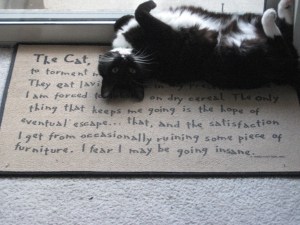 The Cat,
to torment m
They eat lavi
I am forced t on dry cereal. The only
thing that keeps me going is the hope of
eventual escape... that, and the satisfaction
I get from occasionally ruining some piece of
furniture. I fear I may be going insane.